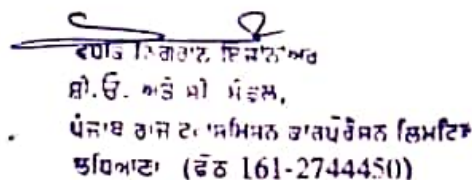 ਵਧੀਕ ਨਿਗਰਾਨ ਇੰਜੀਨੀਅਰ
ਸੀ.ਓ. ਅਤੇ ਸੀ ਮੰਡਲ,
ਪੰਜਾਬ ਰਾਜ ਟਰਾਂਸਮਿਸ਼ਨ ਕਾਰਪੋਰੇਸ਼ਨ ਲਿਮਟਿਡ
ਲੁਧਿਆਣਾ (ਫੋਨ 161-2744450)